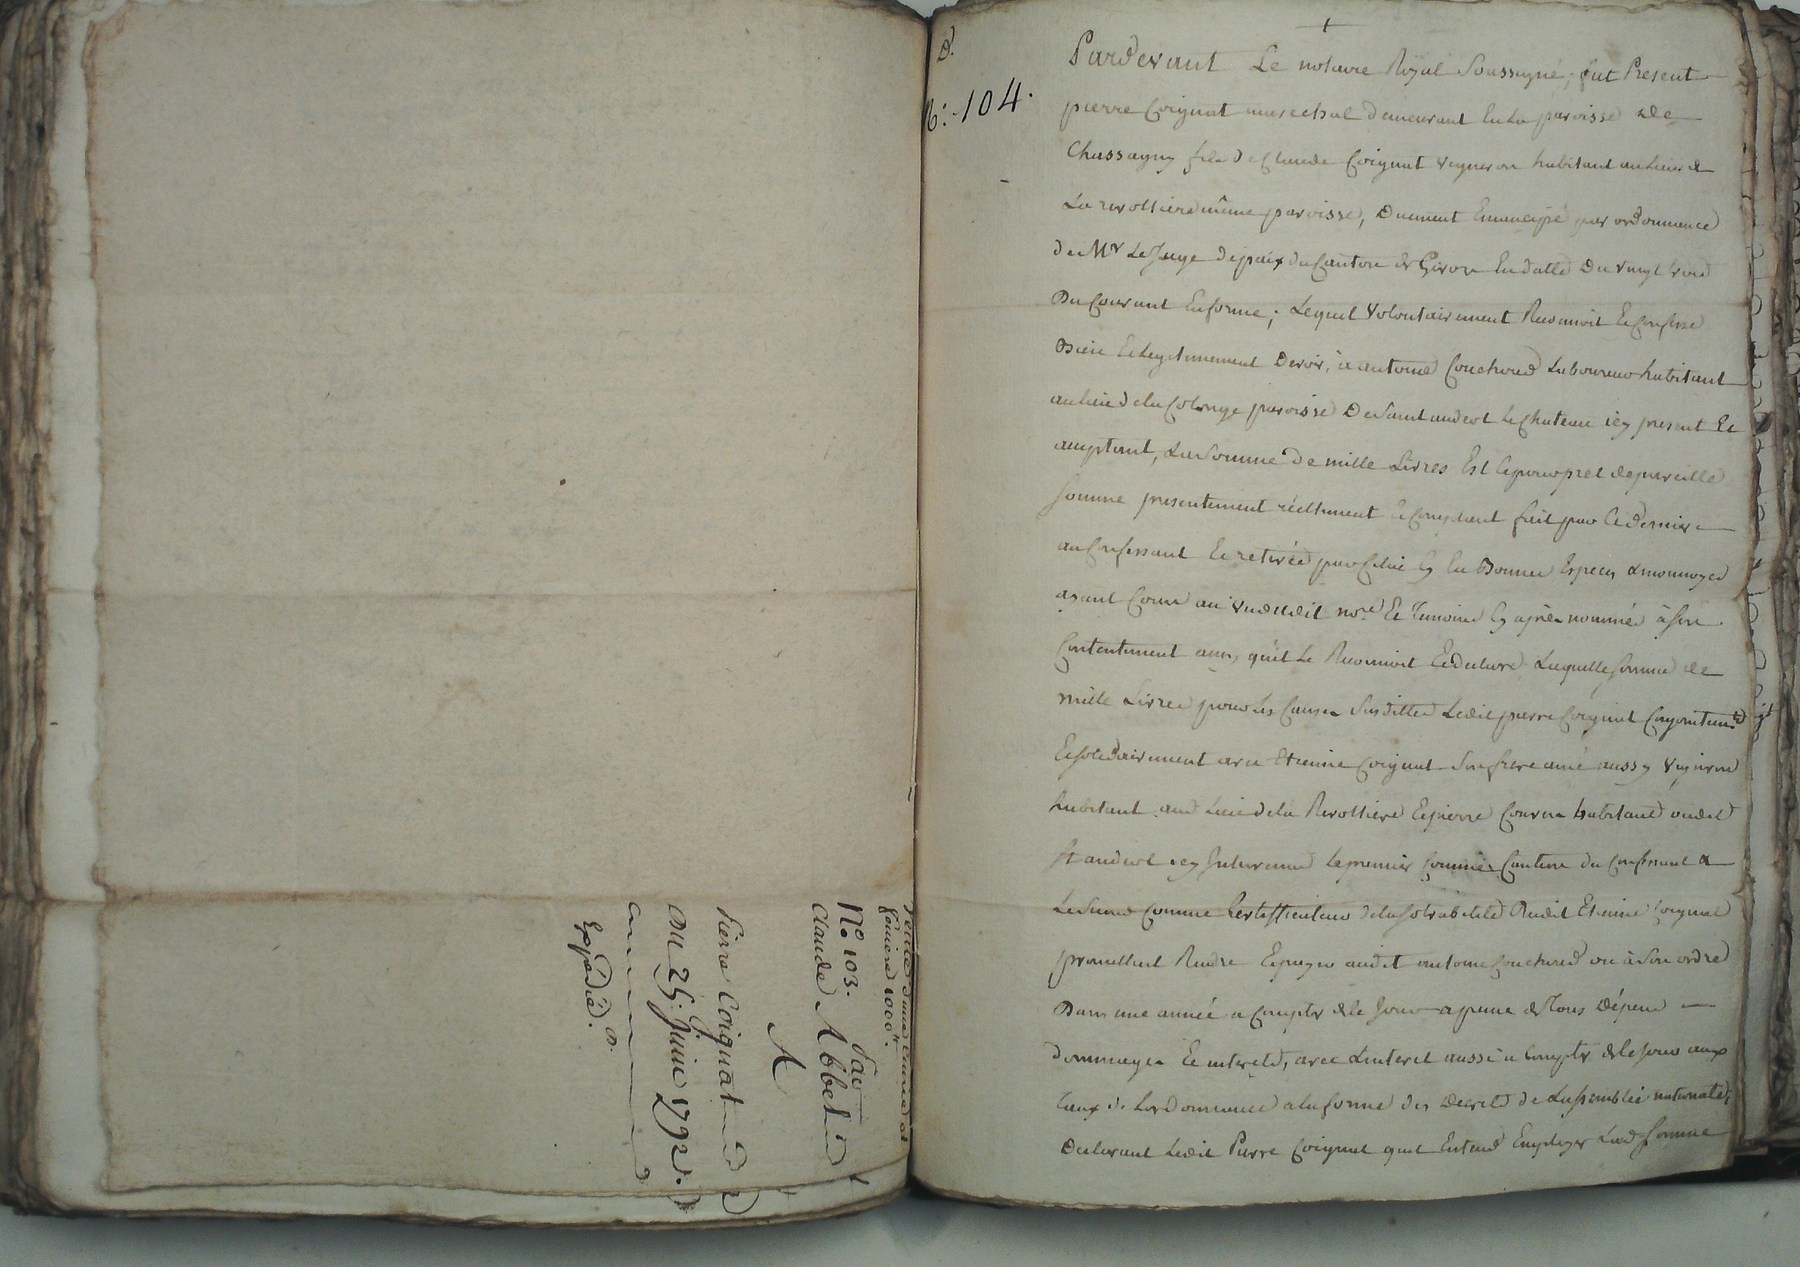 N° 103.
Par
Claude Abbel
A
Pierre Coignat
Du 25. Juin 1792.
Expédié.
N.° 104.
Pardevant Le notaire Royal Soussigné, fut Present
pierre Coignat marechal demeurant en la paroisse de
Chassagny fils de Claude Coignat vigneron habitant au Lieu de
La rivoltiere même paroisse, Duement Emancipé par ordonnance
de Mr Le Juge de paix du Canton de Givors En datte Du vingt trois
Du Courant En forme; Lequel Volontairement Reconnoit & Confesse
Bien & Legitimement Devoir, à antoine Couchoud Laboureur habitant
au Lieu de la Colonge paroisse De Saint andeol Le Chateau icy present Et
acceptant, La Somme de mille Livres Est Ce pour pret de pareille
Somme presentement réellement & Comptant fait par Ce dernier
au Confessant Et retirée par Celui Cy En Bonnes Especes & monnoyes
ayant Cours au vu dudit no.re Et Temoins Cy après nommés à son
Contentement ainsy qu'il Le Reconnoit Et declare Laquelle Somme de
mille Livres pour les Causes Susdittes Ledit pierre Coignat Conjointement
Et solidairement avec Etienne Coignat Son frere ainé aussy vigneron
habitant aud Lieu de la Rivoltiere Et pierre habitant audit
St andeol icy Intervenus Le premier Comme Caution du Confessant &
Le Second Comme Certifficateur de la Solvabilité Dudit Etienne Coignat
promettent Rendre Et payer audit antoine Couchoud ou à Son ordre
Dans une année a Compter de Ce Jour a peine de Tous Dépens
dommages Et interets, avec L'interet aussi a Compter de Ce Jour aux
Taux de L'ordonnance a la forme des Decrets de L'assemblée nationale,
Declarant Ledit Pierre Coignat quil Entend Employer Lad Somme